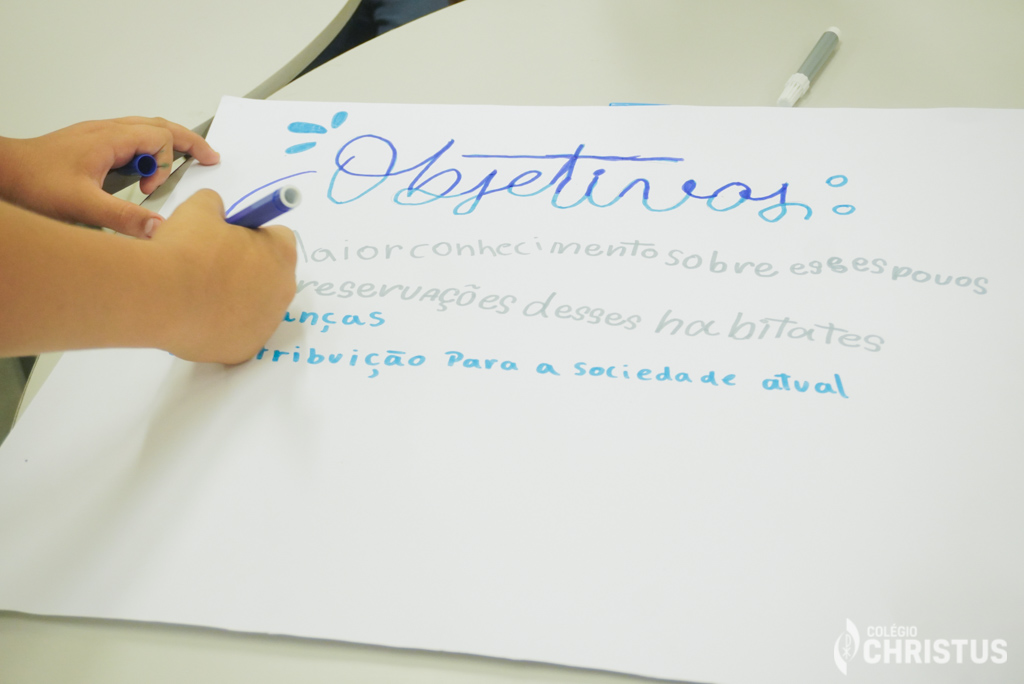 Objetivos:
aior conhecimento sobre esses povos
reservações desses habitates
anças
tribuição Para a sociedade atual
COLÉGIO
CHRISTUS